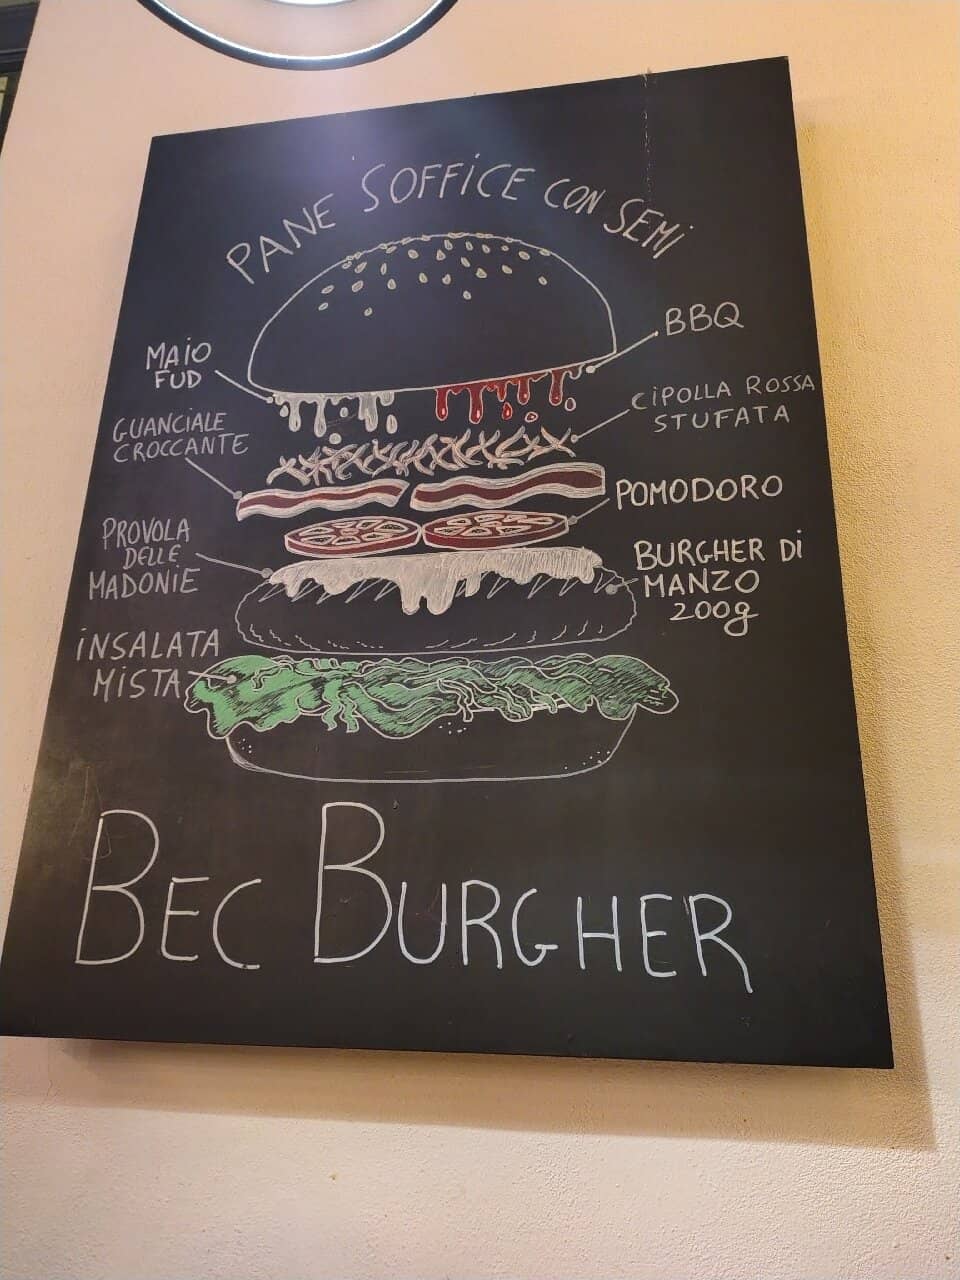 PANE SOFFICE CON SEMI
MAIO
FUD
BBQ
GUANCIALE
CROCCANTE
CIPOLLA ROSSA
STUFATA
POMODORO
PROVOLA
DELLE
MADONIE
BURGHER DI
MANZO
200g
INSALATA
MISTA
BEC BURGHER